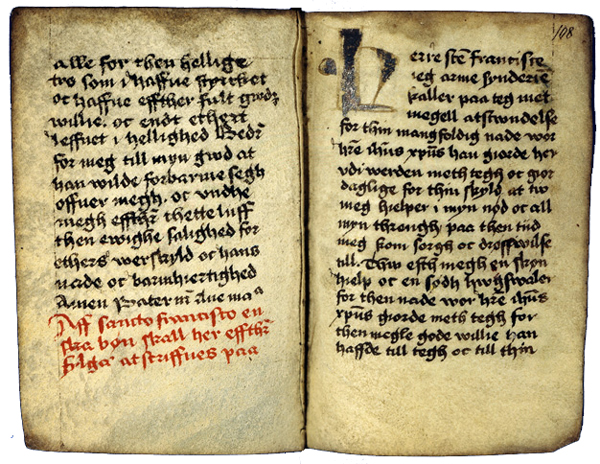 alle for then hellige
tro som i haffue styrket
oc haffue effther fult gwdz
willie. oc endt ethert
leffnet i hellighed Bedz
for meg till myn gwd at
han wilde forbarme segh
offuer megh. oc vndhe
megh effthr thette luff
then ewighe salighed for
ethers werskyld oc hans
nade oc barmhiertighed
Amen Pater nr Aue maa
Aff sancto francisco en
ska bøn skall her effthr
følgæ at scriffues paa
108
erre ste francisce
ieg arme synderie
kaller paa teg met
megell astwndelse
for thin mangfoldig nade wor
hre ihus xpus han giorde her
vdi werden meth tegh oc gør
daglige for thin skyld at tw
meg hielper i myn nød oc all
myn throngh paa then tiid
meg kom sorgh oc drøffwilse
till. Thw esth megh en skøn
hielp oc en sødh
for then nade wor hre ihus
xpus giorde meth tegh for
then megle gode willie han
haffde till tegh oc till thin